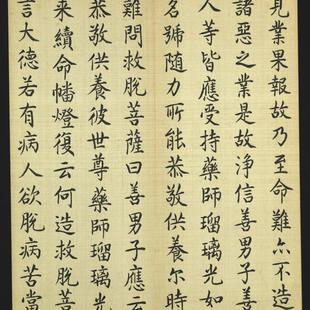 見業果報故乃至命難亦不造
諸惡之業是故淨信善男子善
人等皆應受持藥師瑠璃光如
名號随力所能恭敬供養尒時
難問救脫菩薩曰善男子應云
恭敬供養彼世尊藥師瑠璃光
来續命幡燈復云何造救脫菩
言大德若有病人欲脫病苦當